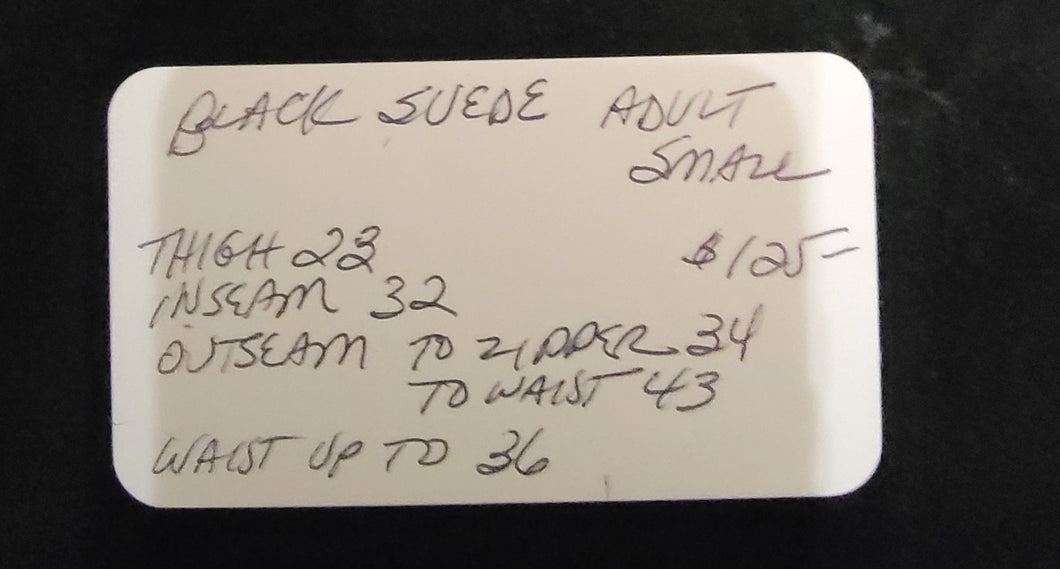 BLACK SUEDE ADULT
SMALL
$125=
THIGH 23
INSEAM 32
OUTSEAM TO ZIPPER 34
TO WAIST 43
WAIST UP TO 36